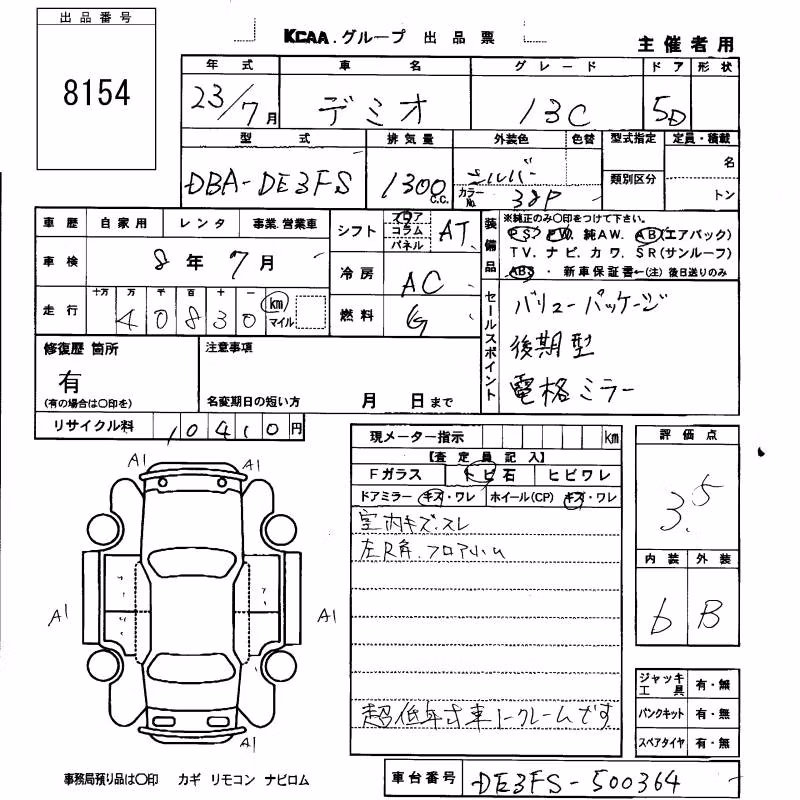 出品番号
8154
KCAA.グループ 出品票
主催者用
年式 車名 グレード ドア 形状
23/7月 デミオ 13C 5D
型式 排気量 外装色 色替 型式指定 定員・積載
DBA-DE3FS 1300c.c. シルバー 名
カラーNo. 38P 類別区分 トン
車歴 自家用 レンタ 事業.営業車
シフト フロア コラム パネル AT
装備品
※純正のみ〇印をつけて下さい。
PS. PW. 純AW. AB(エアバック)
TV. ナビ. カワ. SR(サンルーフ)
ABS ・ 新車保証書←(注) 後日送りのみ
車検 8年7月
冷房 AC
走行 十万 万 千 百 十 一
40830 km マイル
燃料 G
セールスポイント
バリューパッケージ
後期型
電格ミラー
修復歴 箇所 注意事項
有
(有の場合は〇印を)
名変期日の短い方 月 日まで
リサイクル料 10410円
現メーター指示 km
【査定員記入】
Fガラス トビ石 ヒビワレ
ドアミラー キズ・ワレ ホイール(CP) キズ・ワレ
室内キズ.スレ
左R角.フロアハム
超低年式車ノークレームです
評価点
3.5
内装 外装
6 B
ジャッキ工具 有・無
パンクキット 有・無
スペアタイヤ 有・無
A1 A1
A1 A1
A1
事務局預り品は〇印 カギ リモコン ナビロム
車台番号 DE3FS-500364